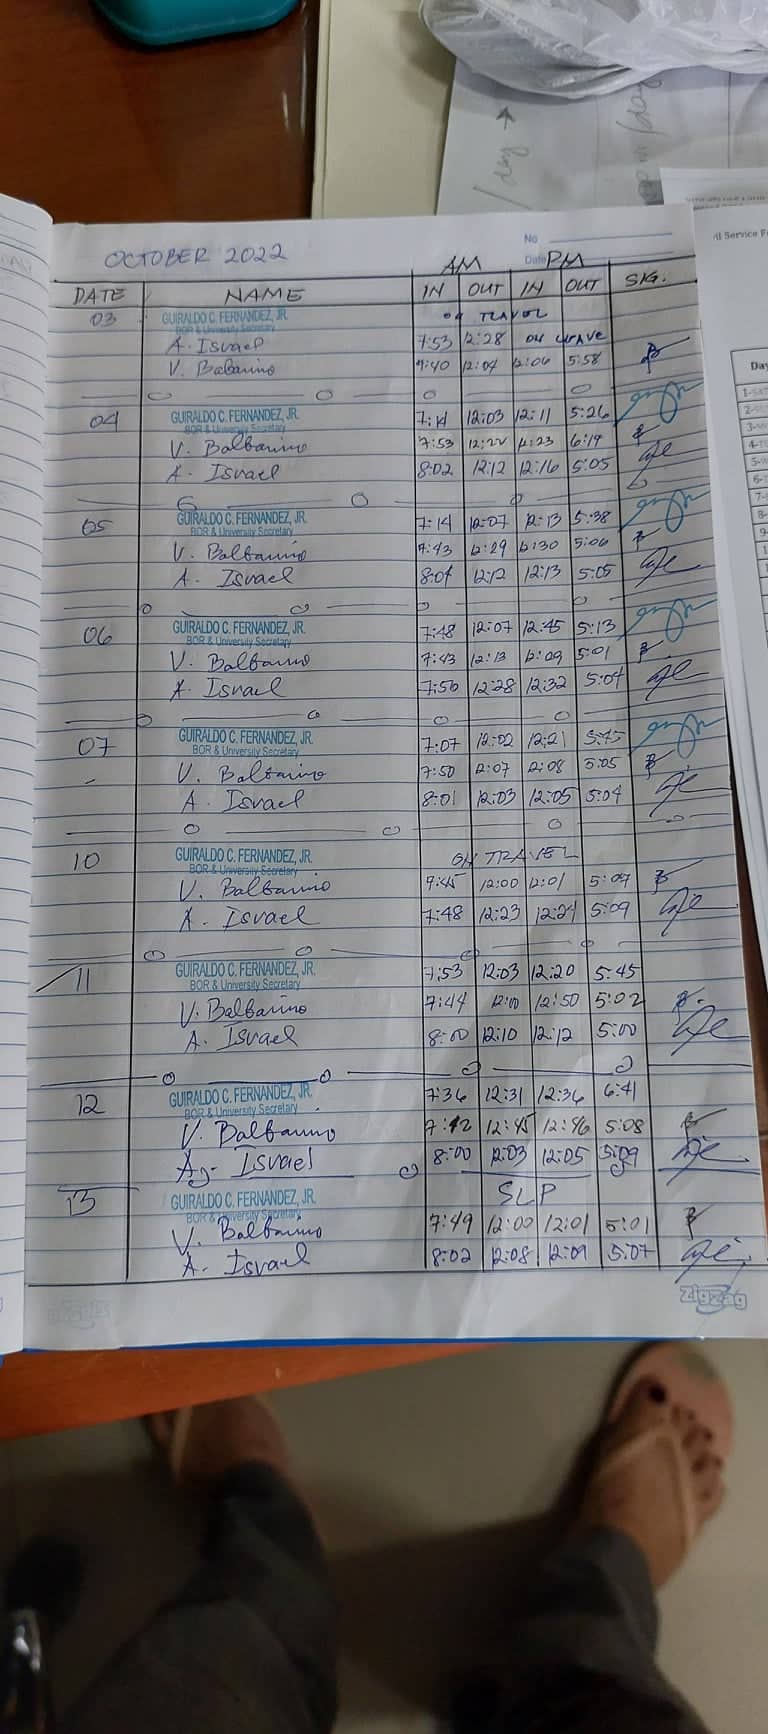 No
OCTOBER 2022 AM Date PM
DATE NAME IN OUT IN OUT SIG.
03 GUIRALDO C. FERNANDEZ, JR. ON TRAVEL
BOR & University Secretary
A. Israel 7:53 12:28 ON LEAVE
V. Balbarino 7:40 12:04 12:06 5:58
04 GUIRALDO C. FERNANDEZ, JR. 7:14 12:03 12:11 5:26
BOR & University Secretary
V. Balbarino 7:53 12:22 12:23 6:19
A. Israel 8:02 12:12 12:16 5:05
05 GUIRALDO C. FERNANDEZ, JR. 7:14 12:07 12:13 5:38
BOR & University Secretary
V. Balbarino 7:43 12:29 12:30 5:06
A. Israel 8:04 12:12 12:13 5:05
06 GUIRALDO C. FERNANDEZ, JR. 7:48 12:07 12:45 5:13
BOR & University Secretary
V. Balbarino 7:43 12:13 12:09 5:01
A. Israel 7:50 12:28 12:32 5:04
07 GUIRALDO C. FERNANDEZ, JR. 7:07 12:02 12:21
BOR & University Secretary
V. Balbarino 7:50 12:07 12:08 5:05
A. Israel 8:01 12:03 12:05 5:04
10 GUIRALDO C. FERNANDEZ, JR. ON TRAVEL
BOR & University Secretary
V. Balbarino 7:45 12:00 12:01 5:09
A. Israel 7:48 12:23 12:24 5:09
11 GUIRALDO C. FERNANDEZ, JR. 7:53 12:03 12:20 5:45
BOR & University Secretary
V. Balbarino 7:44 12:00 12:50 5:02
A. Israel 8:00 12:10 12:12 5:00
12 GUIRALDO C. FERNANDEZ, JR. 7:36 12:31 12:36 6:41
BOR & University Secretary
V. Balbarino 7:42 12:45 12:46 5:08
A. Israel 8:00 12:03 12:05 5:09
13 GUIRALDO C. FERNANDEZ, JR. SLP
BOR & University Secretary
V. Balbarino 7:49 12:00 12:01 5:01
A. Israel 8:02 12:08 12:09 5:07
ZigZag
il Service F
Day